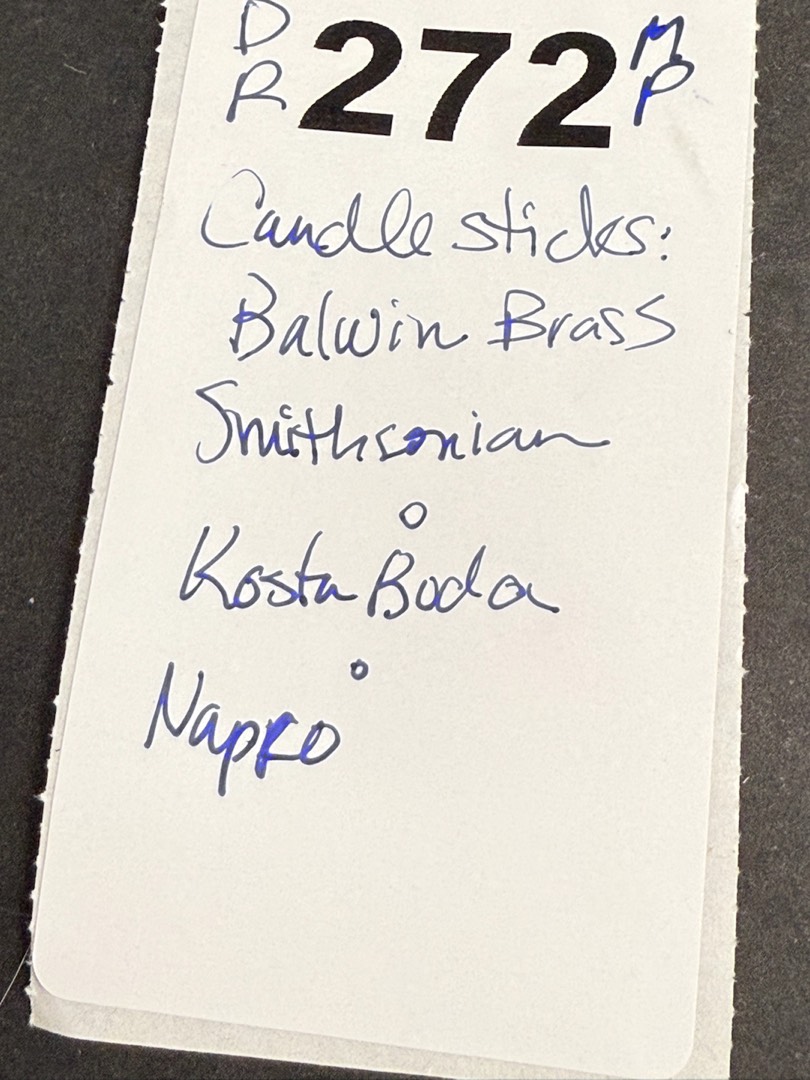 D 272 M
R P
Candle sticks:
Balwin Brass
Smithsonian
Kosta Boda
Napko